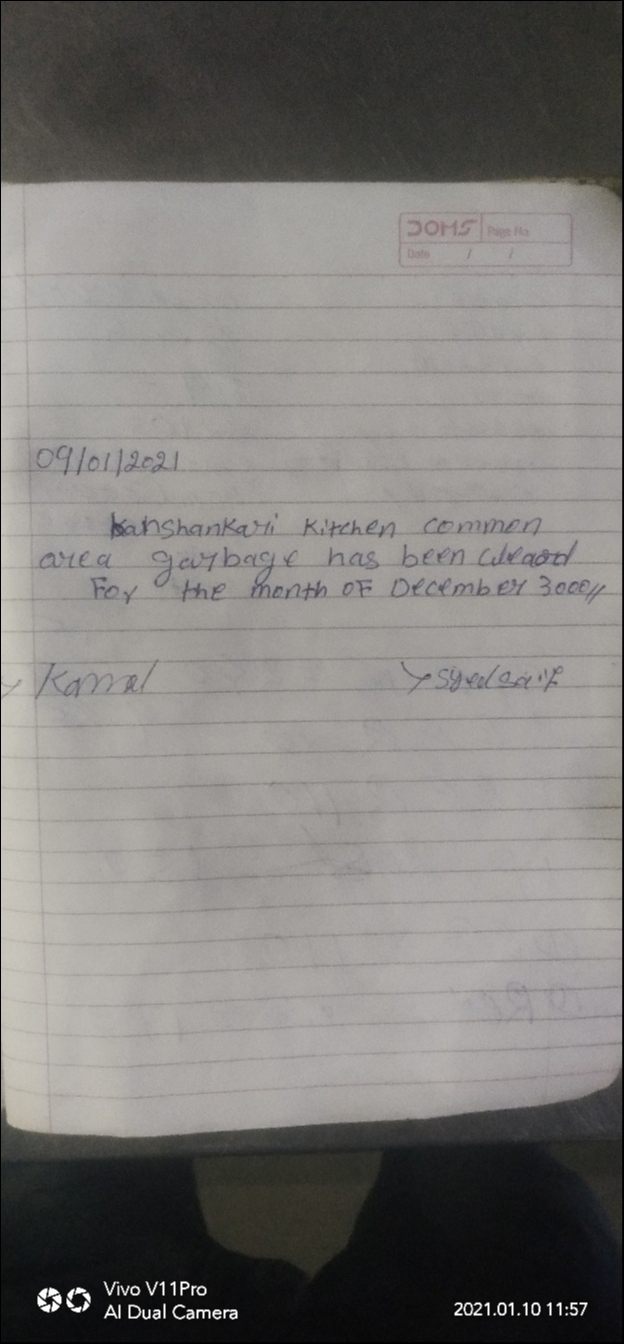 DOMS Page No.
Date / /
09/01/2021
Kanshankari Kitchen common
area garbage has been cleard
For the month OF December 3000//
Kamal
Syed Saif
Vivo V11Pro
AI Dual Camera
2021.01.10 11:57